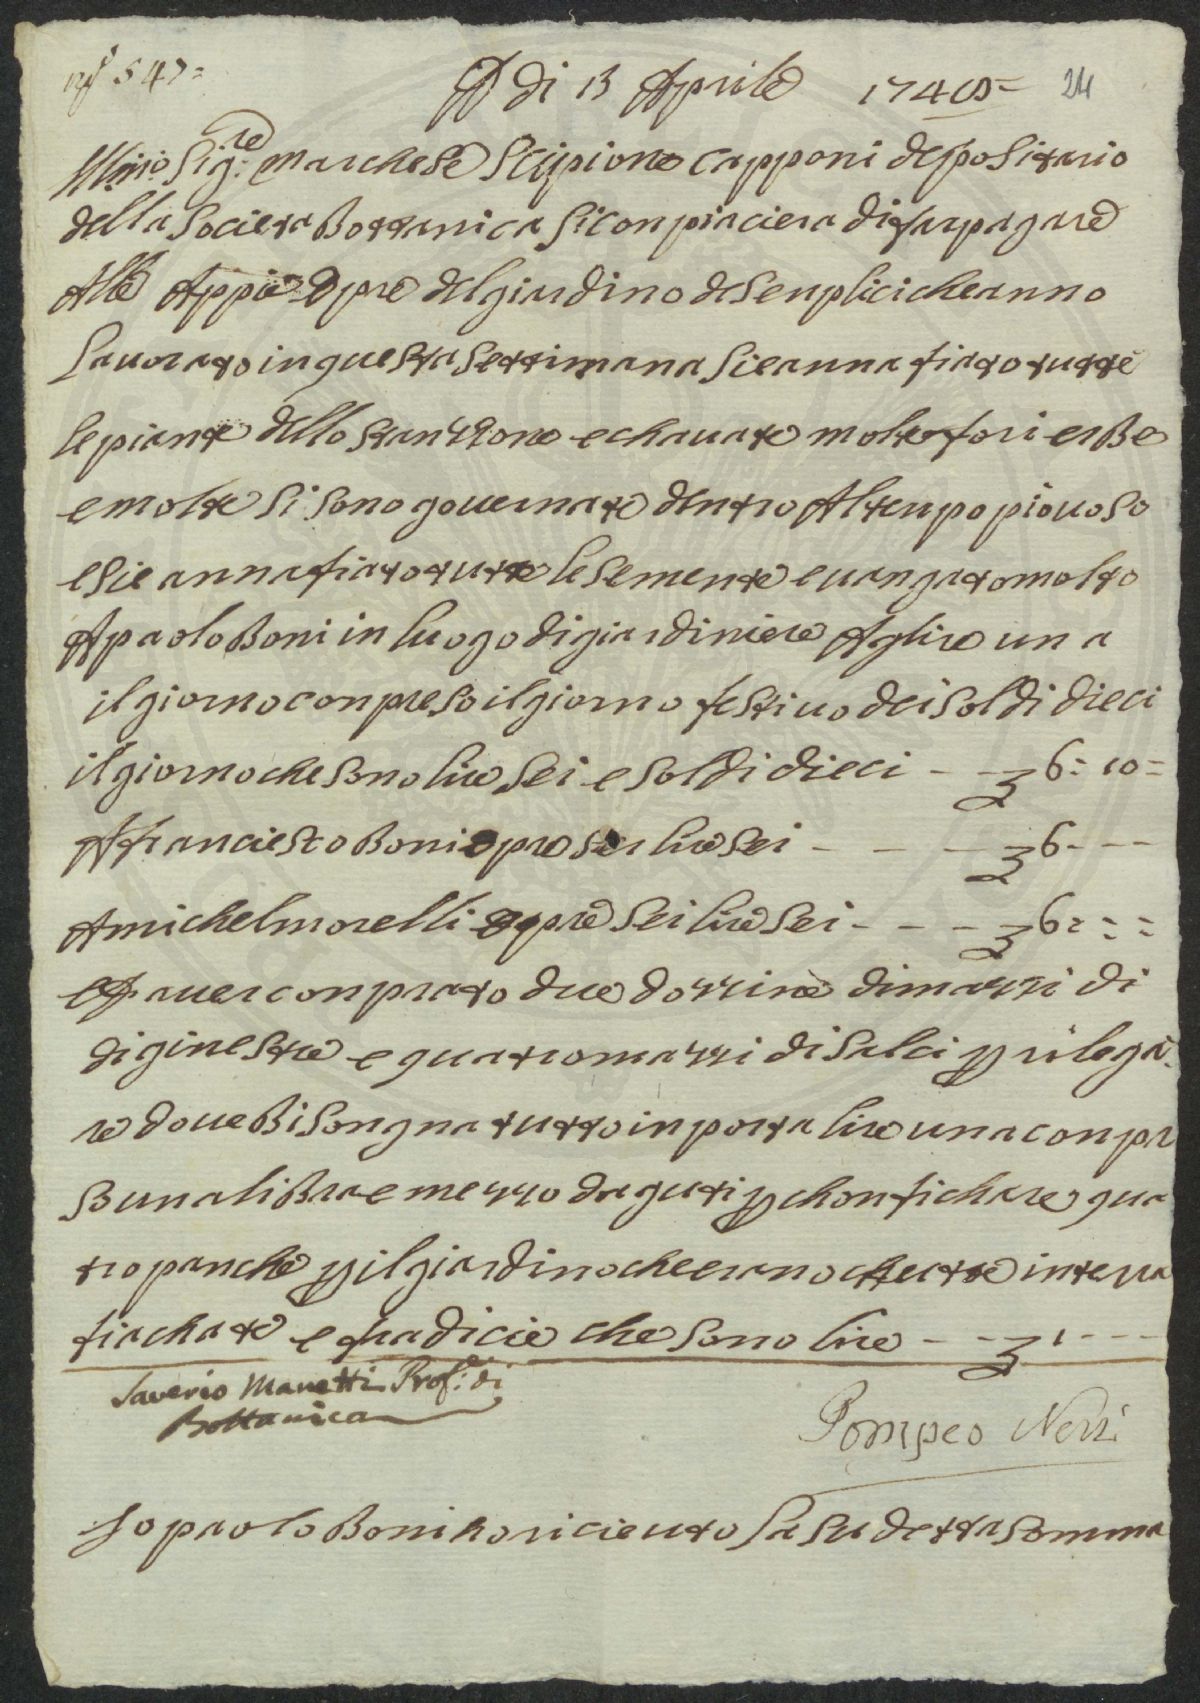 nº 547= A di 13 Aprile 1748= 24
Illmo Sig:re Marchese Scipione capponi depositario
della Societa Bottanica si conpiaciera di far pagare
Alle Appie Opre del giardino de Senplici che anno
Lavorato in questa settimana si e annafiato tutte
le piante dello stanzzone e chavate molte fori erBe
e molte si sono governate dentro Al tenpo piovoso
e si e annafiato tutte le semente e vangato molto
A paolo Boni in luogo di giardiniere A lire una
il giorno conpreso il giorno festivo dei soldi dieci
il giorno che sono lire sei e soldi dieci - - 6: 10=
A franciesco Boni opre sei lire sei - - - - 6- - -
A michel morelli opre sei lire sei - - - - 6= = =
e p aver conprato due dozzine di mazzi di
di ginestre e quatro mazzi di salci p rilega
re dove Bisongna tutto inporta lire una conpr
so una liBra e mezzo daguti p chonfichare qua
tro panche p il giardino che erano in terra
fiachate e fradicie che sono lire - - 1 - - -
Saverio Manetti Prof:e di
Bottanica
Pompeo Neri
Io paolo Boni ho riceuto la su detta somma